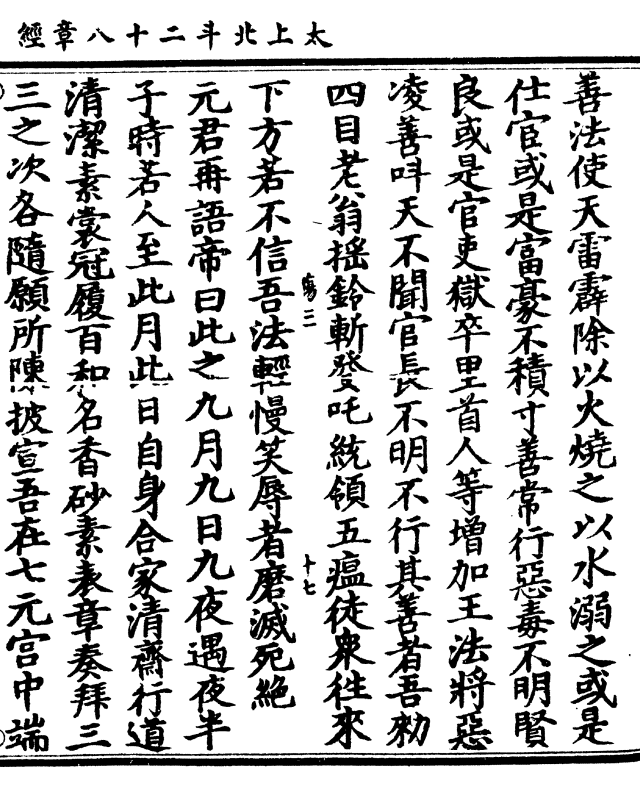 太上北斗二十八章經
善法使天雷霹除以火燒之以水溺之或是
仕官或是富豪不積寸善常行惡毒不明賢
良或是官吏獄卒里首人等增加王法將惡
凌善叫天不聞官長不明不行其善者吾勑
四目老翁搖鈴斬發吒統領五瘟徒衆往來
三
十七
下方若不信吾法輕慢笑辱者磨滅死絕
元君再語帝曰此之九月九日九夜遇夜半
子時若人至此月此日自身合家清齋行道
清潔素裳冠履百和名香砂素表章奏拜三
三之次各隨願所陳披宣吾在七元宫中端